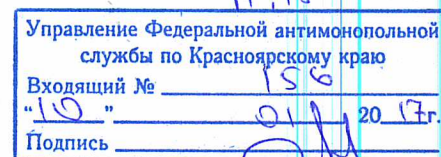 Управление Федеральной антимонопольной
службы по Красноярскому краю
Входящий № 156
"10" 01 2017г.
Подпись